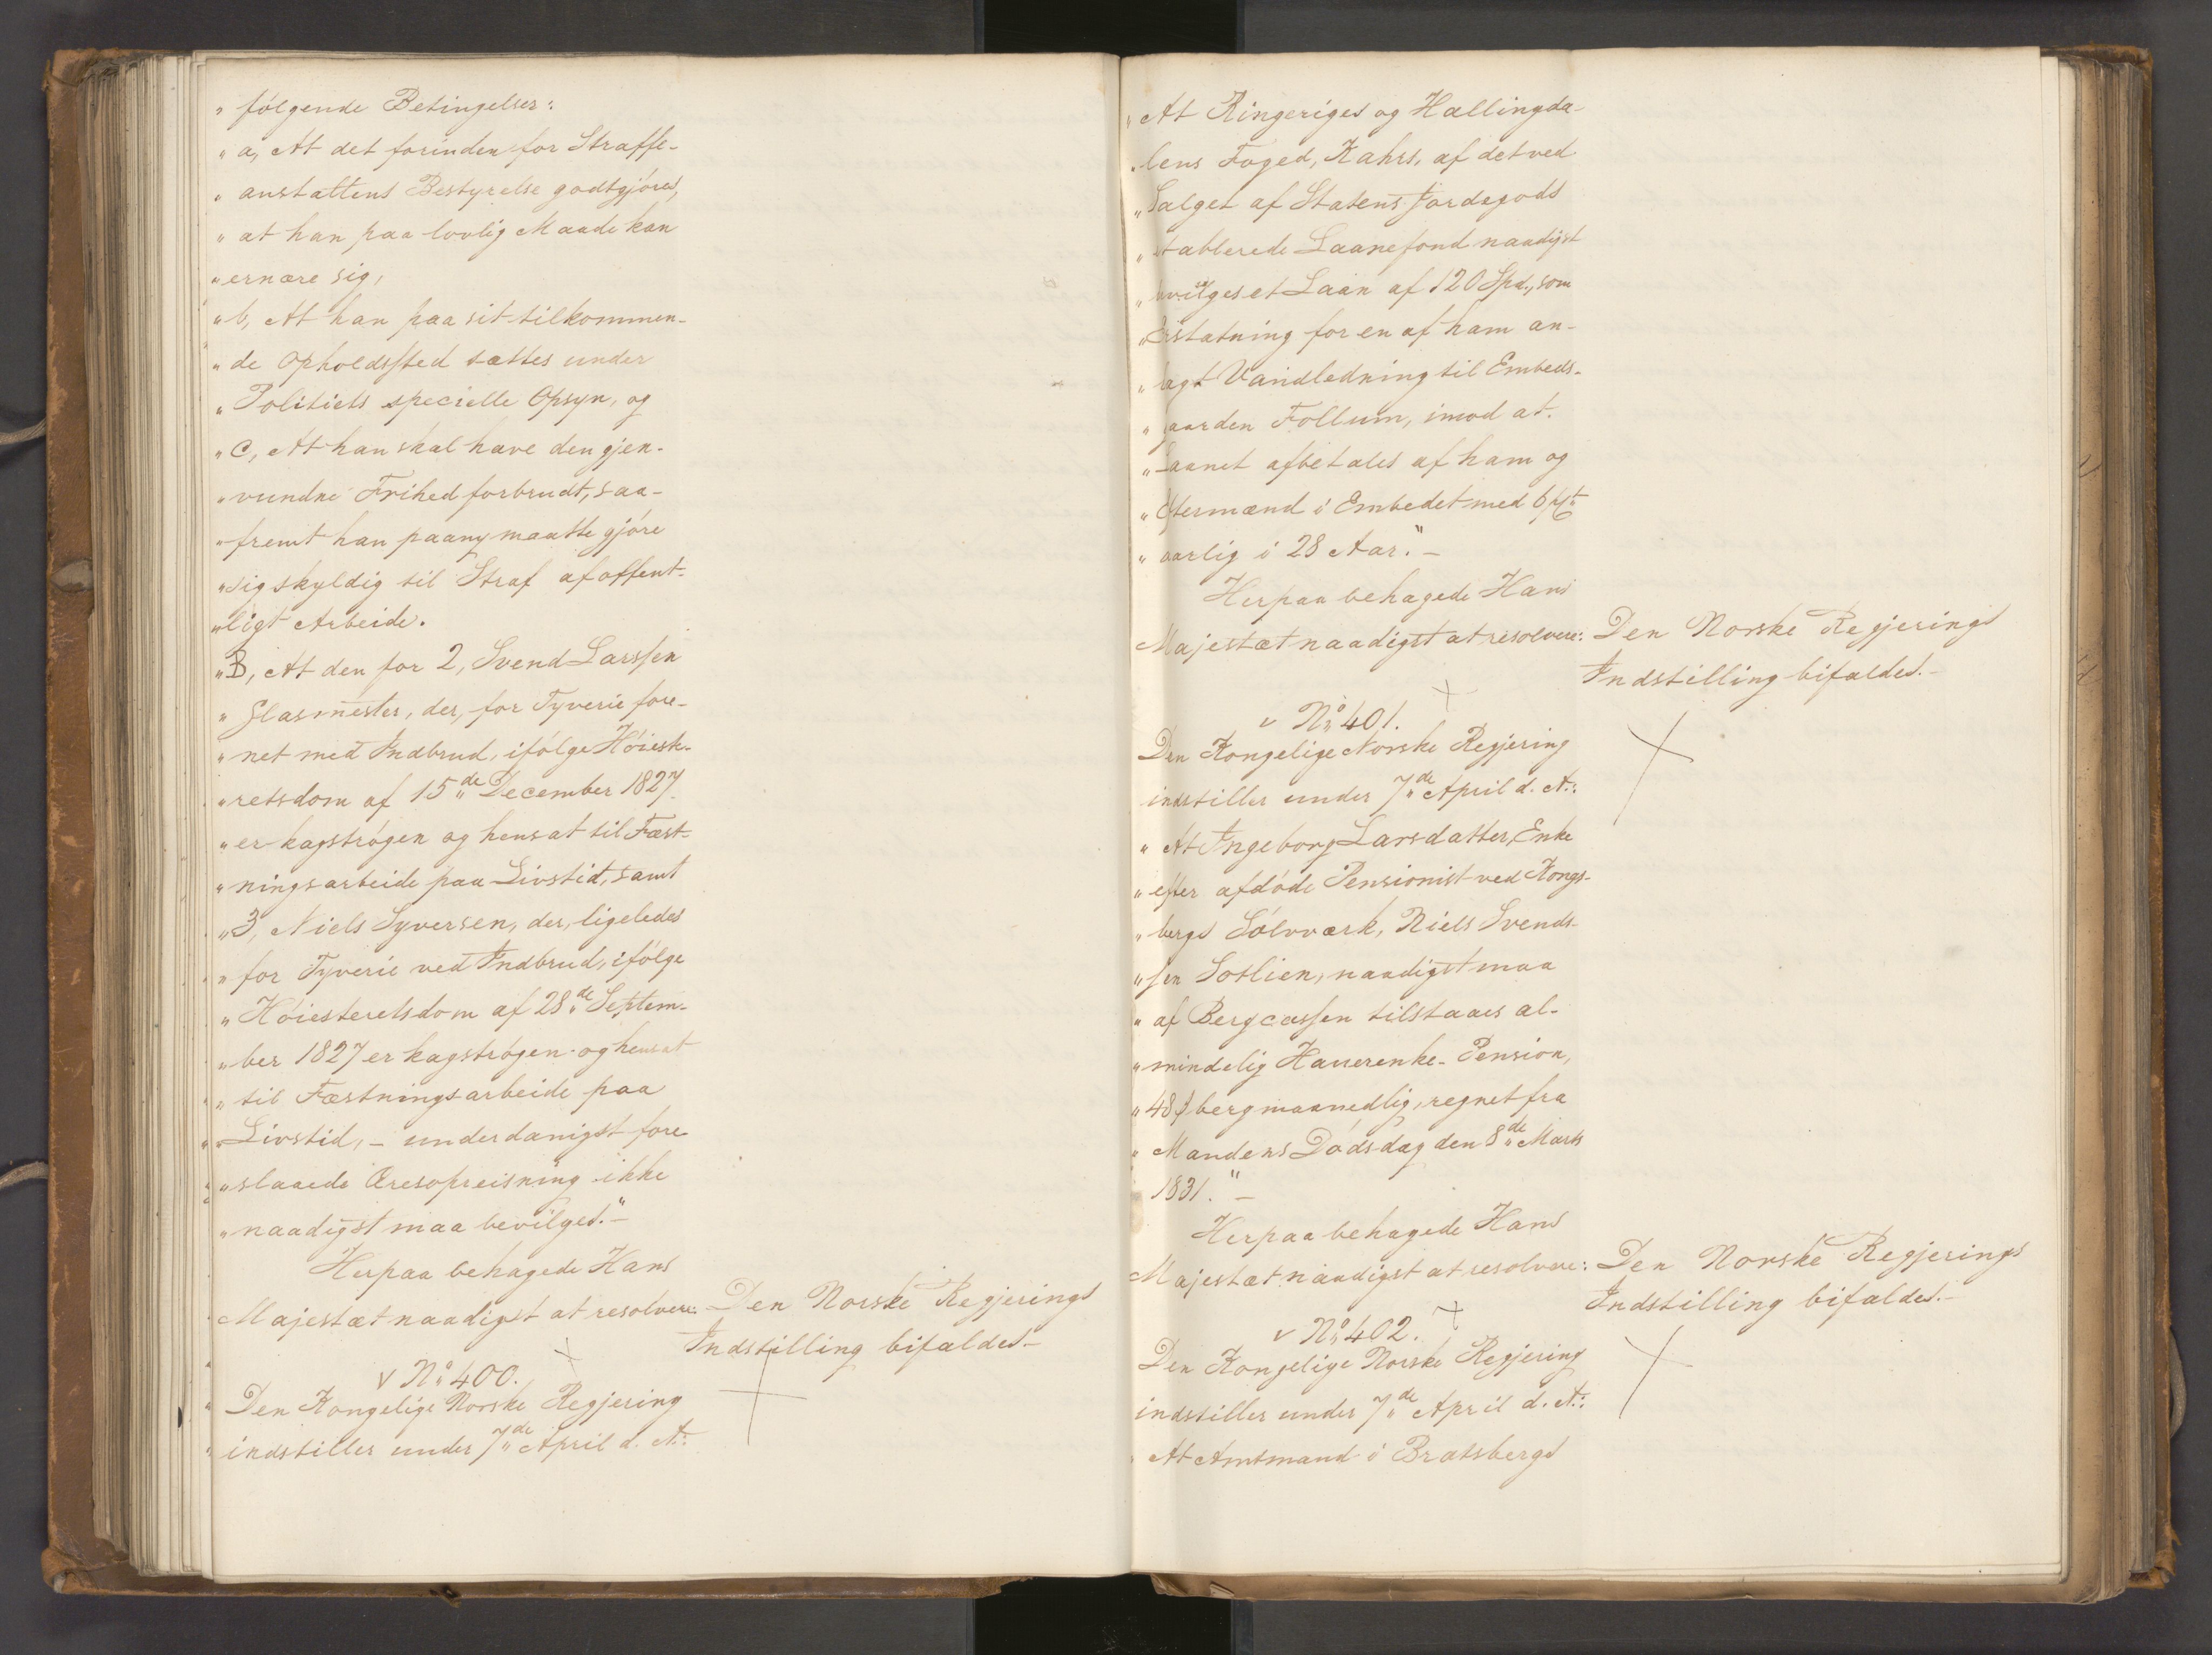 „ følgende Betingelser:
„ a, At det forinden for Straffe-
„ anstaltens Bestyrelse godtgjøres,
„ at han paa lovlig Maade kan
„ ernære sig,
„ b, At han paa sit tilkommen-
„ de Opholdssted sættes under
„ Politiets specielle Opsyn, og
„ c, At han skal have den gjen-
„ vundne Frihed forbrudt, saa-
„ fremt han paany maatte gjøre
„ sig skyldig til Straf af offent-
„ ligt Arbeide.
„ B, At den for 2, Svend Larssen
„ Glasmester, der, for Tyverie fore-
„ net med Indbrud, ifølge Høieste-
„ retsdom af 15de December 1827
„ er kagstrøgen og hensat til Fæst-
„ ningsarbeide paa Livstid, samt
„ 3, Niels Syversen, der, ligeledes
„ for Tyverie ved Indbrud, ifølge
„ Høiesteretsdom af 28de Septem-
„ ber 1827 er kagstrøgen og hensat
„ til Fæstningsarbeide paa
„ Livstid, – underdanigst fore-
„ slaaede Æresopreisning ikke
„ naadigst maa bevilges." –
Herpaa behagede Hans
Majestæt naadigst at resolvere: Den Norske Regjerings
Indstilling bifaldes. –
v No 400.
Den Kongelige Norske Regjering
indstiller under 7de April d. A.:
„ At Ringeriges og Hallingda-
„ lens Foged, Kahrs, af det ved
„ Salget af Statens Jordegods
„ etablerede Laanefond naadigst
„ bevilges et Laan af 120 Spd., som
„ Erstatning for en af ham an-
„ lagt Vandledning til Embeds-
„ gaarden Follum, imod at
„ Laanet afbetales af ham og
„ Eftermænd i Embedet med 6 pCt
„ aarlig i 28 Aar." –
Herpaa behagede Hans
Majestæt naadigst at resolvere: Den Norske Regjerings
Indstilling bifaldes. –
v No 401.
Den Kongelige Norske Regjering
indstiller under 7de April d. A.:
„ At Ingeborg Larsdatter, Enke
„ efter afdøde Pensionist ved Kongs-
„ bergs Sølvværk, Niels Svend-
„ sen Sotlien, naadigst maa
„ af Bergcassen tilstaaes al-
„ mindelig Hauerenke-Pension,
„ 48 ſ bergmaanedlig, regnet fra
„ Mandens Dødsdag den 8de Marts
1831." –
Herpaa behagede Hans
Majestæt naadigst at resolvere: Den Norske Regjerings
Indstilling bifaldes. –
v No 402.
Den Kongelige Norske Regjering
indstiller under 7de April d. A.:
„ At Amtmand i Bratsbergs